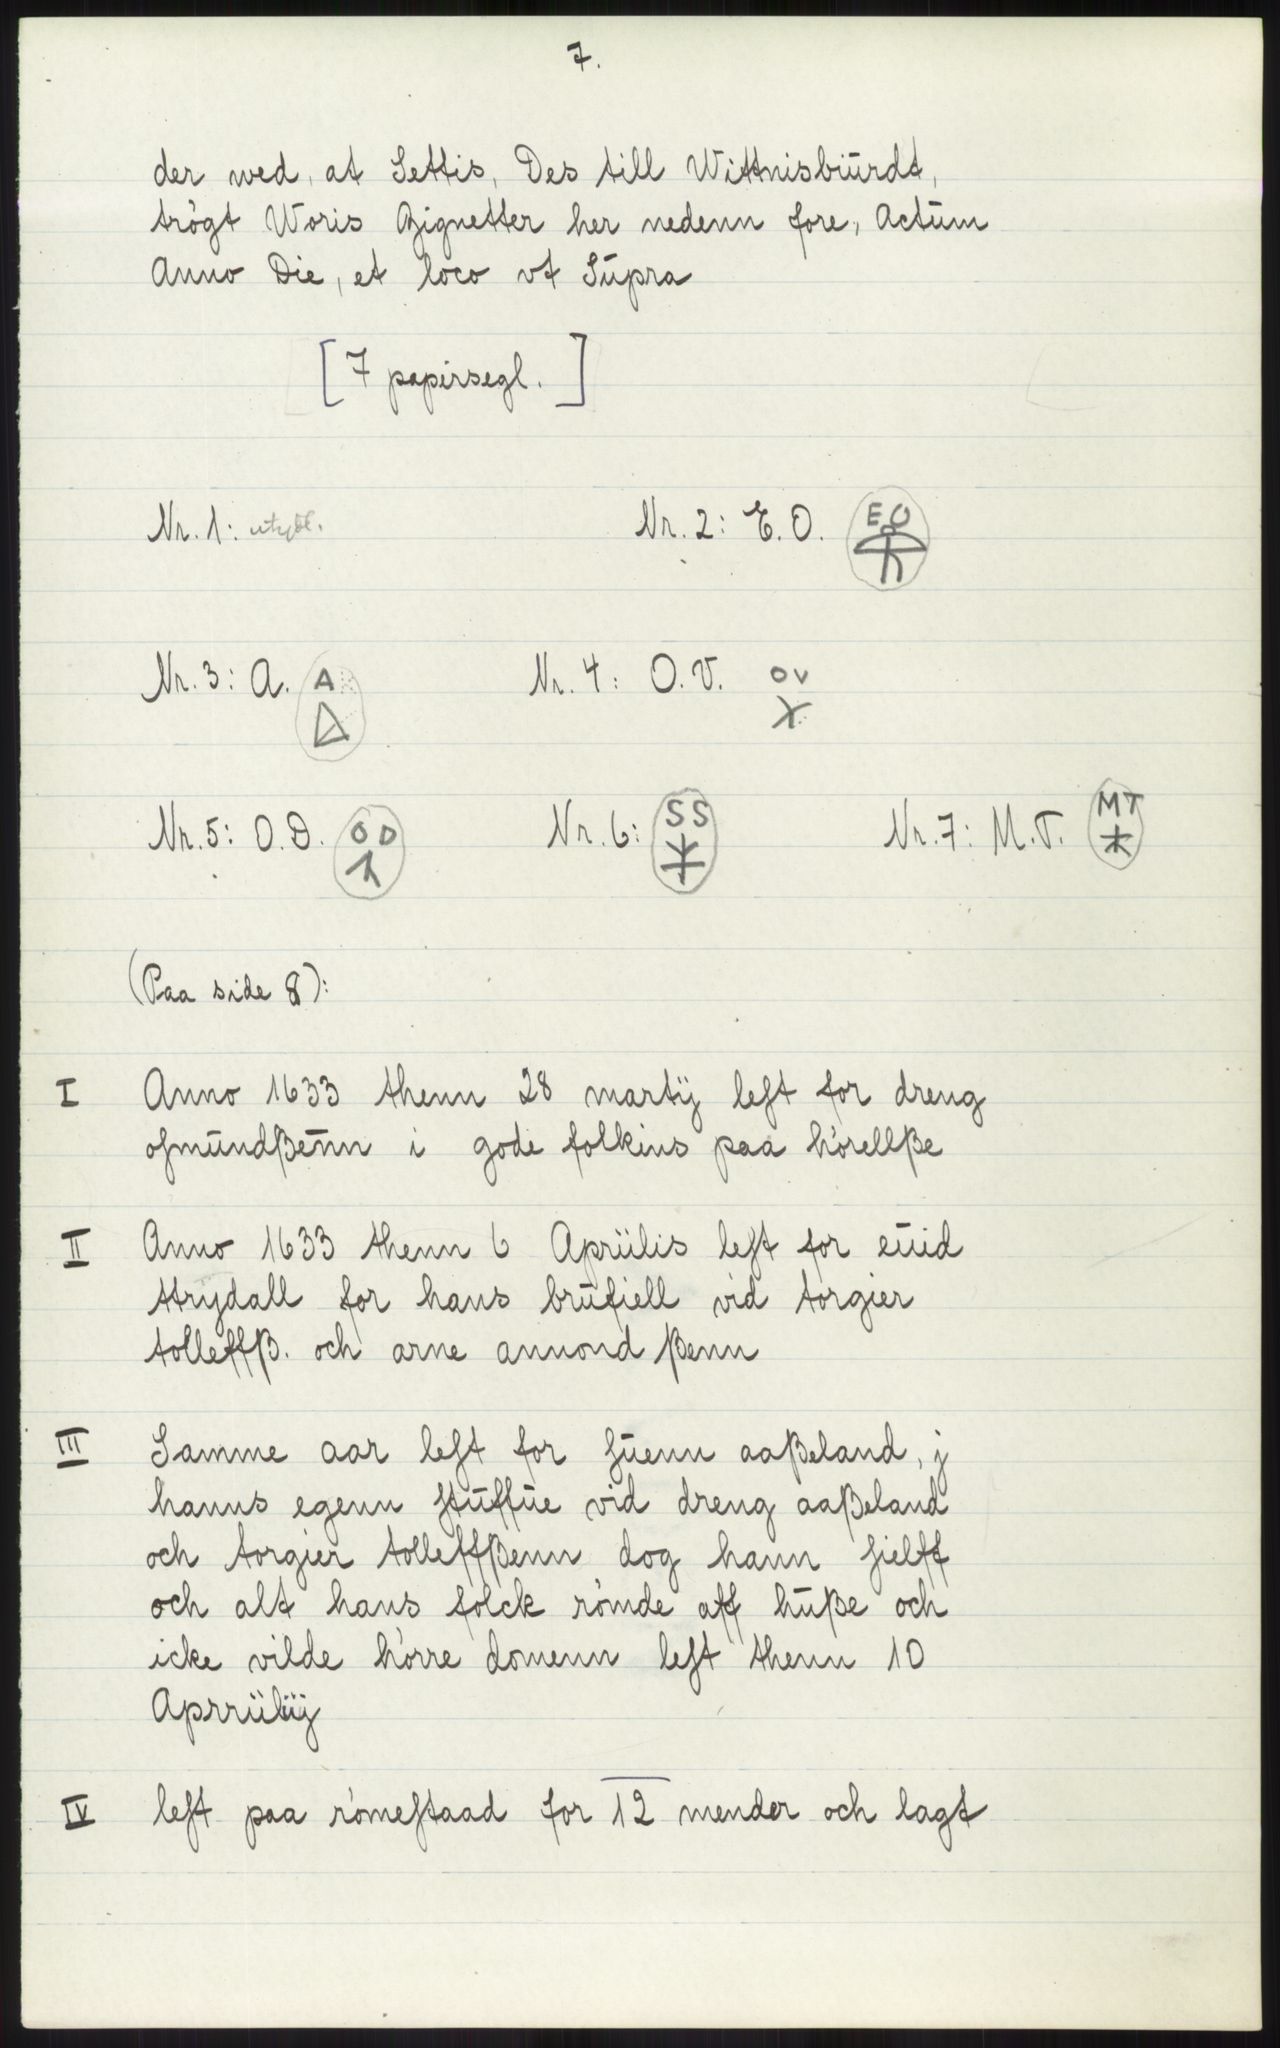 7.
der wed, at Settis, Des till Wittnisbiŭrdt,
trögt Woris Zignetter her nedenn fore, Actŭm
Anno Die, et loco vt Sŭpra
[7 papirsegl.]
Nr. 1: utydl. Nr. 2: E. O. EO
Nr. 3: A. A Nr. 4: O. V. OV
Nr. 5: O. D. OD Nr. 6: SS Nr. 7: M. T. MT
(Paa side 8):
I Anno 1633 thenn 28 martÿ leſt for dreng
oſmŭndßenn i gode folkins paa hörellße
II Anno 1633 thenn 6 Apriilis leſt for eŭid
ttrydall for hans brŭfiell vid torgier
tolleffß. och arne annond ßenn
III Samme aar leſt for ſŭenn aaßeland, j
hanns egenn ſtŭffŭe vid dreng aaßeland
och torgier tolleffßenn dog hann ſielff
och alt hans folck römde aff hŭße och
icke vilde hörre domenn leſt thenn 10
Aprriilÿ
IV leſt paa römeſtaad for 12 mender och lagt